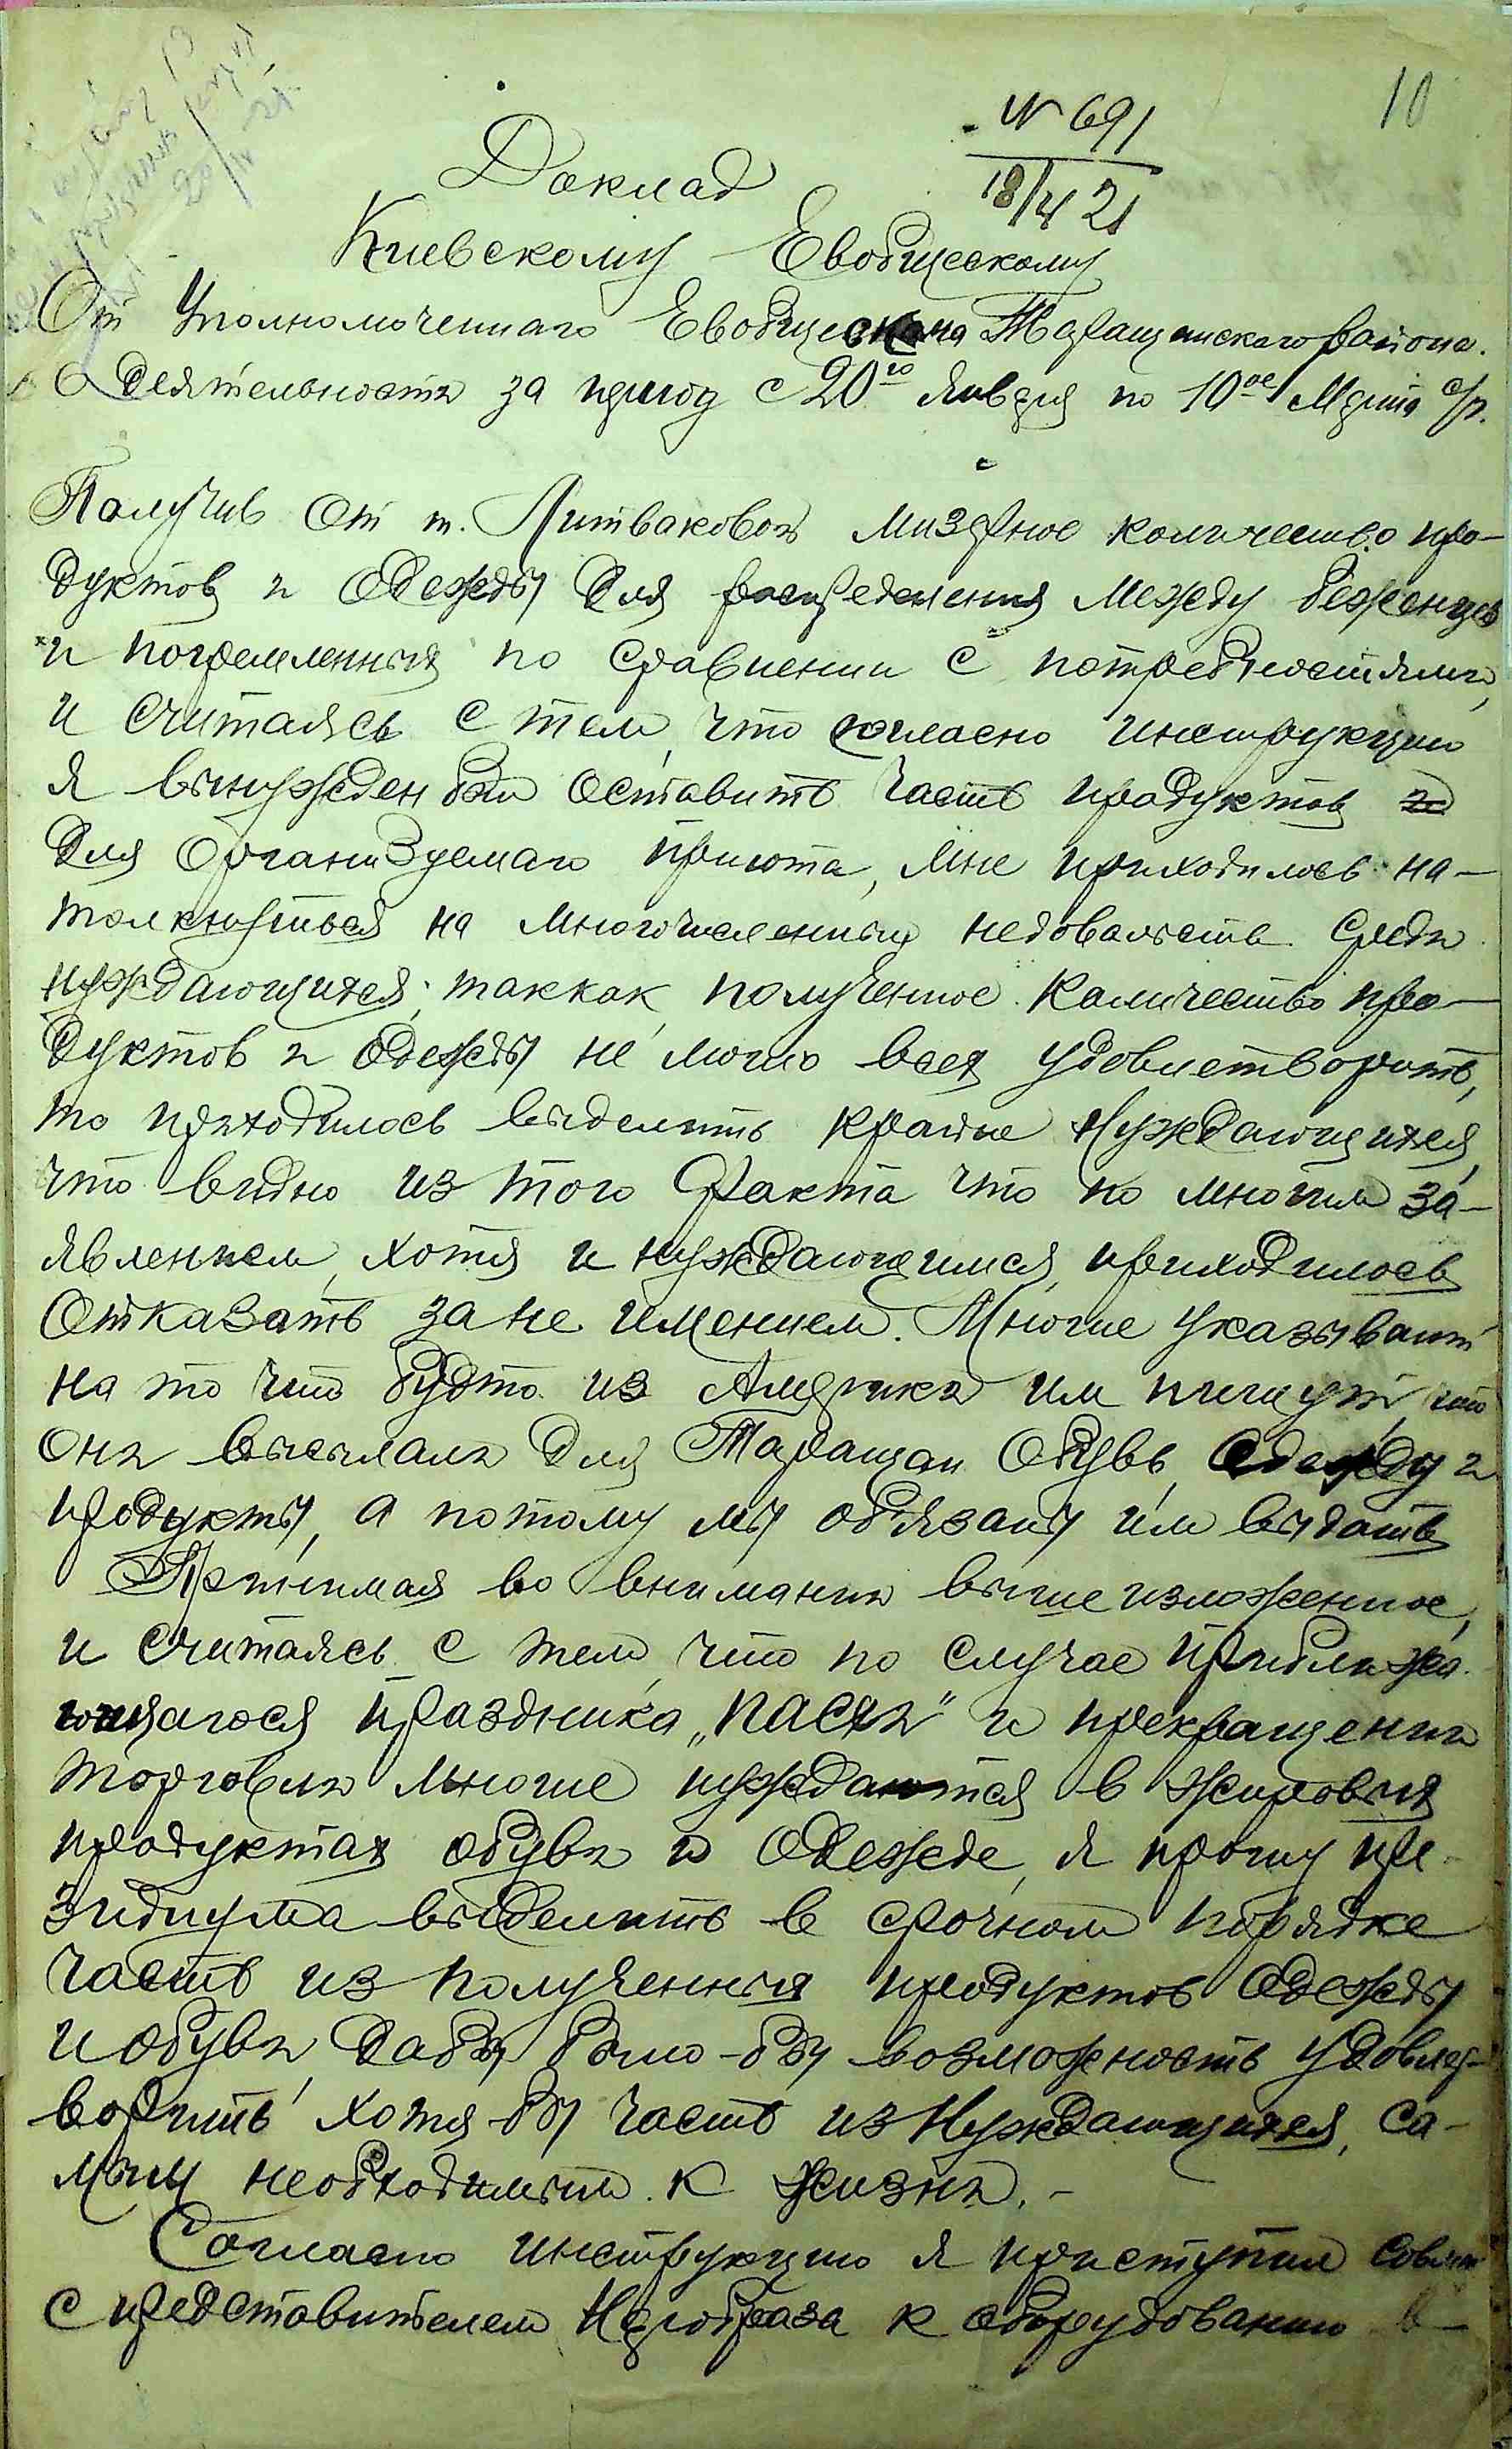 10
№ 691
18/IV 21
Доклад
Киевскому Евобщескому
От Уполномоченнаго Евобщескома Таращанскаго района.
О деятельности за период с 20го Января по 10ое Марта с/г.
Получив От т. Литваковой мизерное количество про-
дуктов и Одежды для распределения между беженцев
и погромленных по сравнении с потребностями,
и считаясь с тем, что согласно инструкции
я вынужден был оставить часть продуктов
для Организуемаго приюта, мне приходилось на-
толкнуться на многочисленныя недовольств среди
нуждающихся; таккак полученное количество про-
дуктов и одежды не могло всех удовлетворить,
то приходилось выделить крайне нуждающихся,
что видно из того факта что по многим за-
явлением, хотя и нуждающимся, приходилось
Отказать за не имением. Многие указывают
на то что будто из Америки им пишут, что
Они высылали для Таращан Обувь, Одежду и
продукты, а потому мы обязаны им выдать
Принимая во внимании выше изложенное,
и считаясь с тем, что по случае приближа
ющагося праздника „пасхи" и прекращении
торговли многие нуждаются в жировых
продуктах обуви и Одежде, я прошу пре
зидиума выделить в срочном порядке
часть из полученных продуктов Одежды
и обуви, дабы было-бы возможность удовлет-
ворить хотя-бы часть из нуждающихся, са-
мым необходимым к жизни. -
Согласно инструкцию я приступил совм
с представителем Наробраза к оборудованию в-